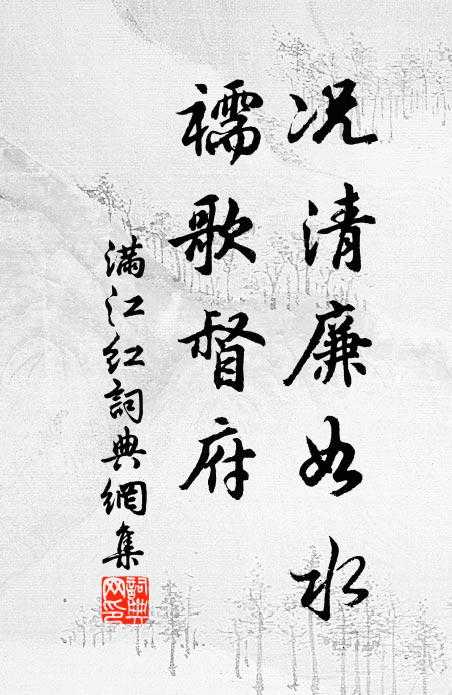 况清廉如水
襦歌督府
满江红詞典網集
詞典网印